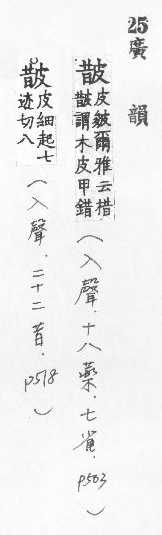 25廣韻
皵皮皴爾雅云棤
皵謂木皮甲錯
(入聲．十八藥．七雀．p503)
皵皮細起七
迹切八
(入聲．二十二昔．p518)